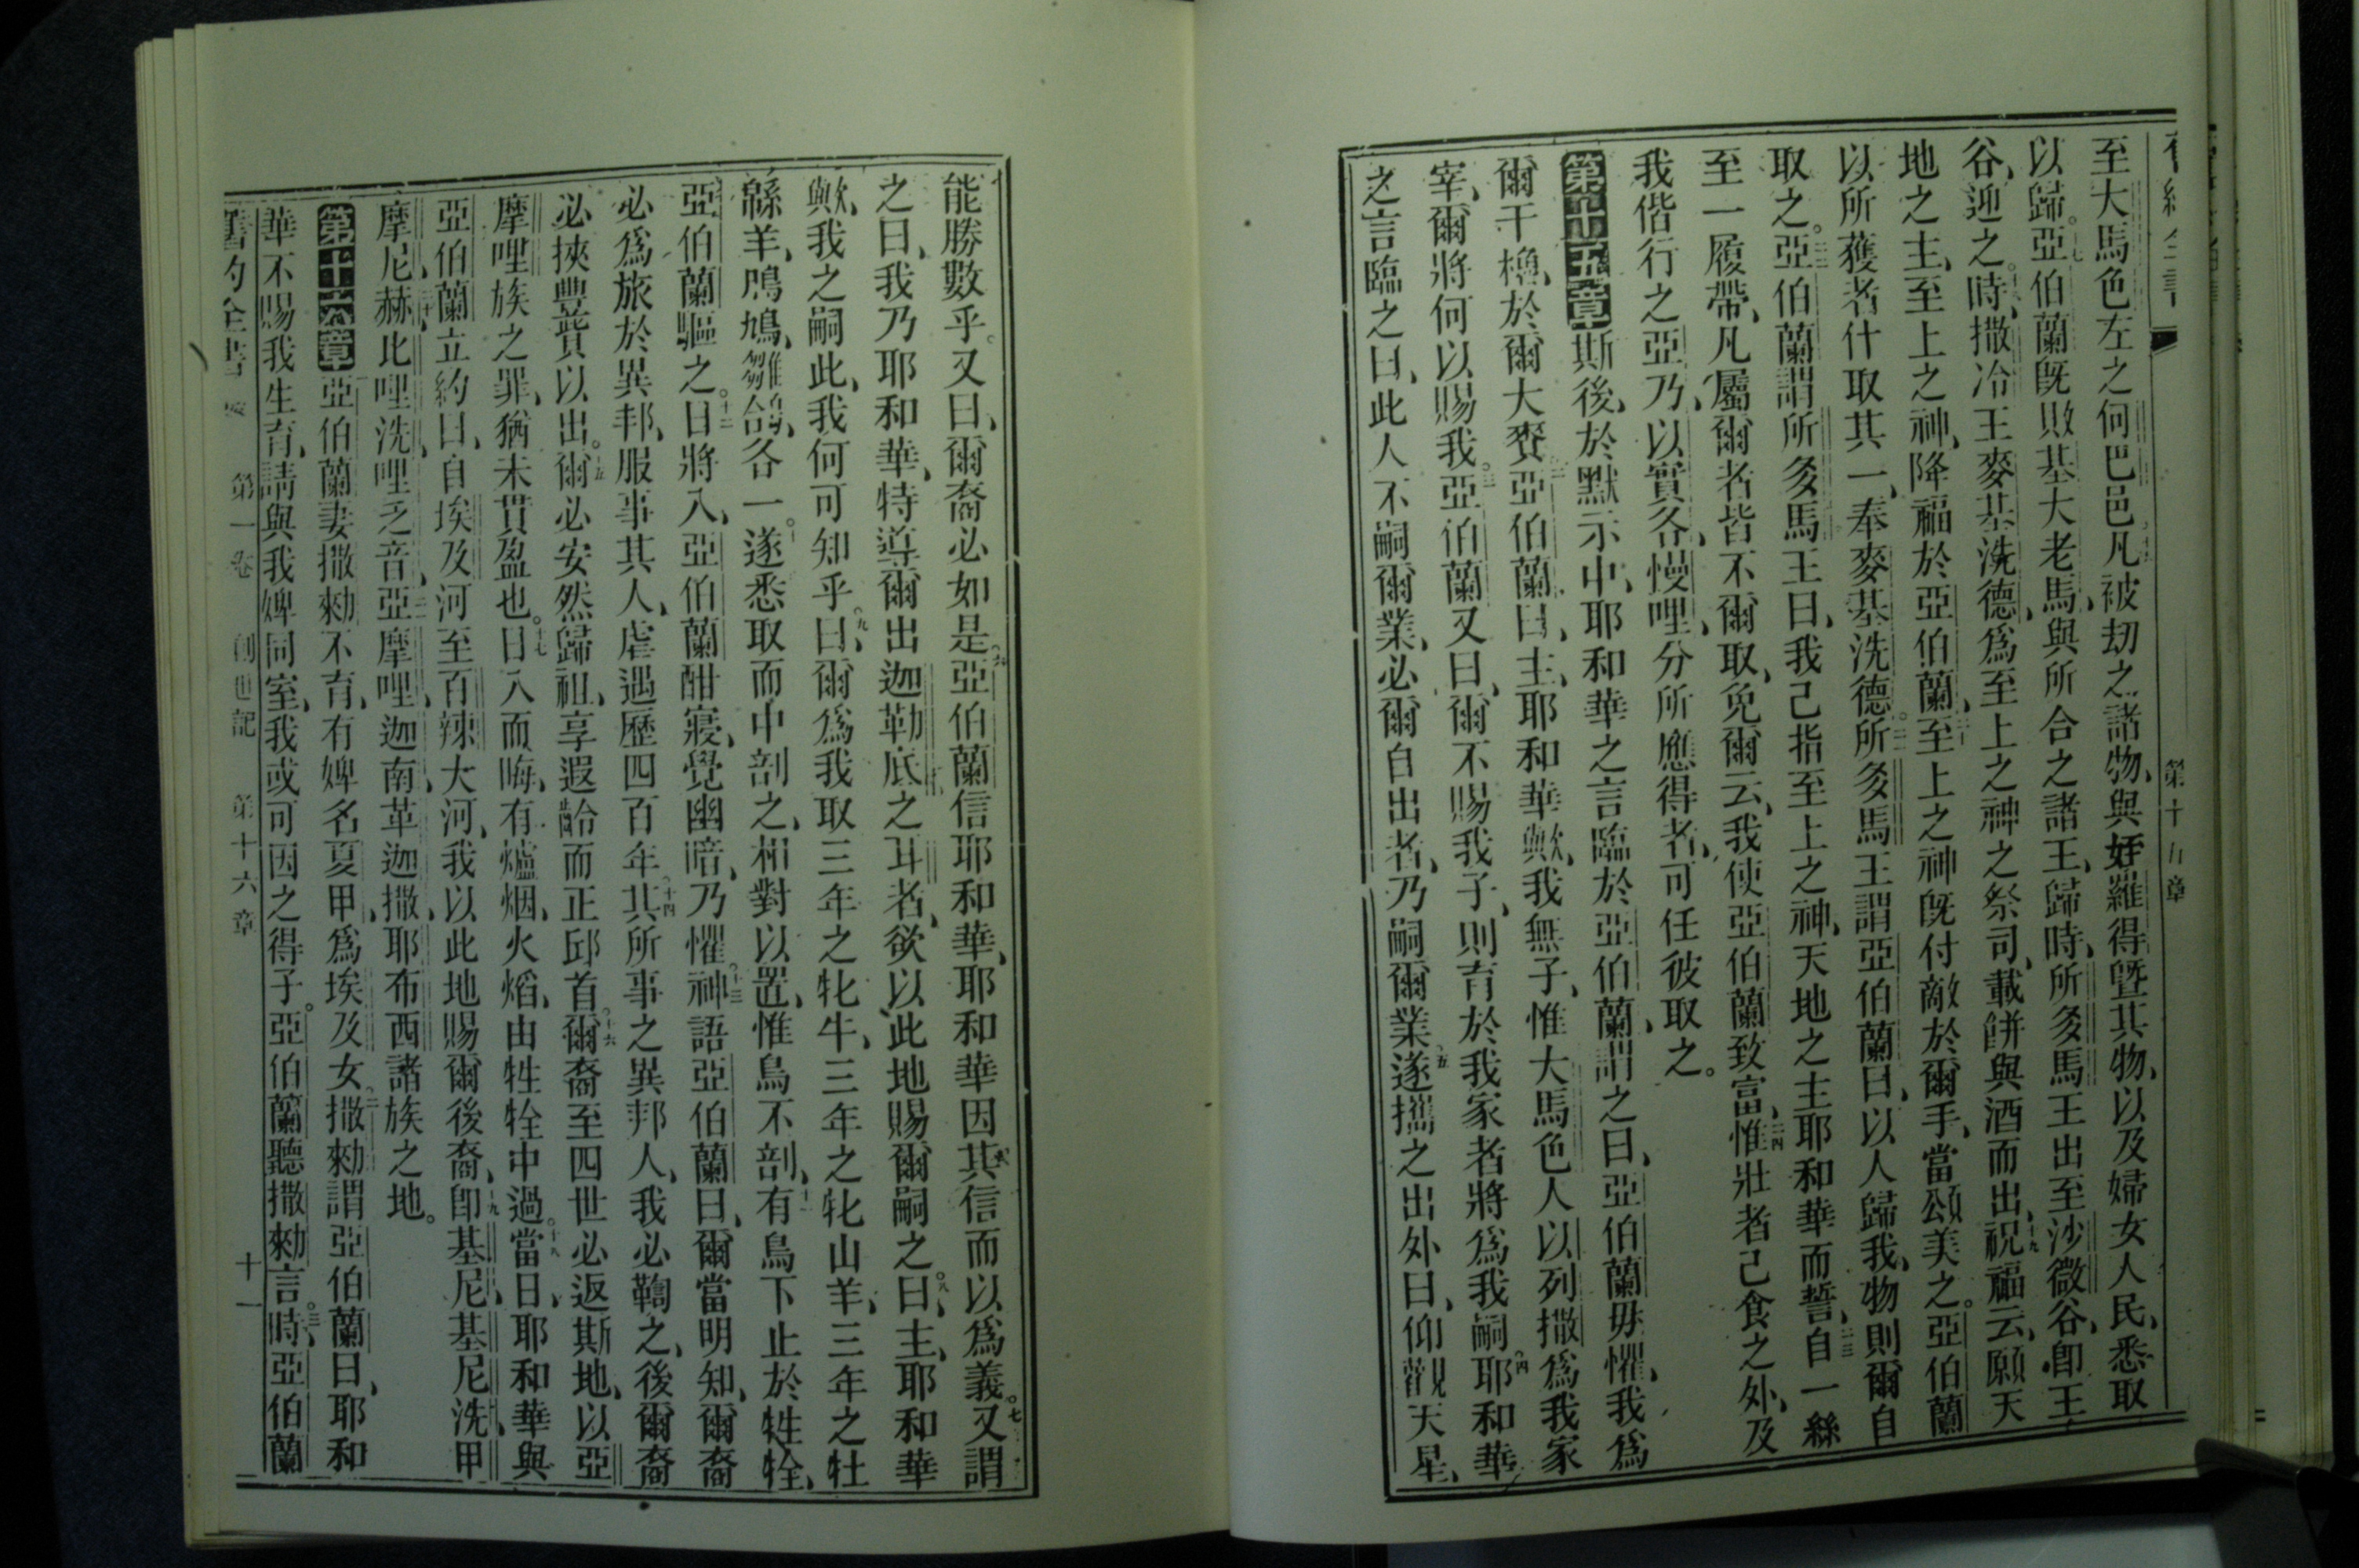 第十五章
至大馬色左之何巴邑、凡被刧之諸物、與姪羅得曁其物、以及婦女人民、悉取
以歸。十七亞伯蘭旣敗基大老馬、與所合之諸王、歸時、所多馬王出至沙微谷、卽王
谷、迎之。時、撒冷王麥基洗德、爲至上之神之祭司、載餅與酒而出、十九祝福云、願天
地之主、至上之神、降福於亞伯蘭、二十至上之神旣付敵於爾手、當頌美之。亞伯蘭
以所獲者什取其一、奉麥基洗德。所多馬王謂亞伯蘭曰、以人歸我、物則爾自
取之。亞伯蘭謂所多馬王曰、我已指至上之神、天地之主耶和華而誓、二三自一絲
至一履帶、凡屬爾者皆不爾取、免爾云、我使亞伯蘭致富、二四惟壯者已食之外、及
我偕行之亞乃、以實各、慢哩、分所應得者、可任彼取之。
第十五章斯後、於默示中、耶和華之言臨於亞伯蘭、謂之曰、亞伯蘭毋懼、我爲
爾干櫓、於爾大賚、二亞伯蘭曰、主耶和華歟、我無子、惟大馬色人以列撒爲我家
宰、爾將何以賜我。三亞伯蘭又曰、爾不賜我子、則育於我家者將爲我嗣、四耶和華
之言臨之曰、此人不嗣爾業、必爾自出者、乃嗣爾業、五遂攜之出外曰、仰觀天星、
能勝數乎。又曰、爾裔必如是、六亞伯蘭信耶和華、耶和華因其信而以爲義。七又謂
之曰、我乃耶和華、特導爾出迦勒底之耳者、欲以此地賜爾嗣之。八曰、主耶和華
歟、我之嗣此、我何可知乎。九曰、爾爲我取三年之牝牛、三年之牝山羊、三年之牡
緜羊、鳲鳩、雛鴿、各一。遂悉取而中剖之、相對以置、惟鳥不剖、十一有鳥下止於牲牷、
亞伯蘭驅之。十二日將入、亞伯蘭酣寢、覺幽暗、乃懼。十三神語亞伯蘭曰、爾當明知、爾裔
必爲旅於異邦、服事其人、虐遇歷四百年、十四其所事之異邦人、我必鞫之、後爾裔
必挾豐貲以出。十五爾必安然歸祖、享遐齡而正邱首、十六爾裔至四世必返斯地、以亞
摩哩族之罪、猶未貫盈也。十七日入而晦、有爐烟、火熖、由牲牷中過。十八當日、耶和華與
亞伯蘭立約曰、自埃及河至百辣大河、我以此地賜爾後裔、十九卽基尼、基尼洗、甲
摩尼、二十赫、比哩洗、哩乏音、二一亞摩哩、迦南、革迦撒、耶布西諸族之地。
第十六章亞伯蘭妻撒勑不育、有婢名夏甲、爲埃及女、二撒勑謂亞伯蘭曰、耶和
華不賜我生育、請與我婢同室、我或可因之得子。亞伯蘭聽撒勑言。三時、亞伯蘭
第一卷 創世記 第十六章 十一